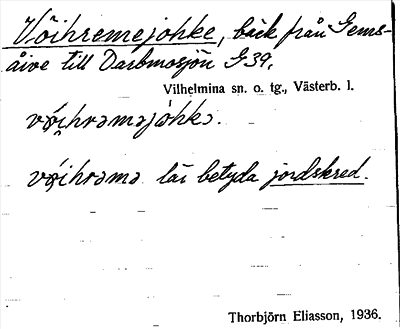 Vöihremejohke, bäck från Gems-
åive till Darbmosjön G39.
Vilhelmina sn. o. tg., Västerb. l.
vǿi̯hrəməjòhkə.
vǿihrəmə lär betyda jordskred.
Thorbjörn Eliasson, 1936.